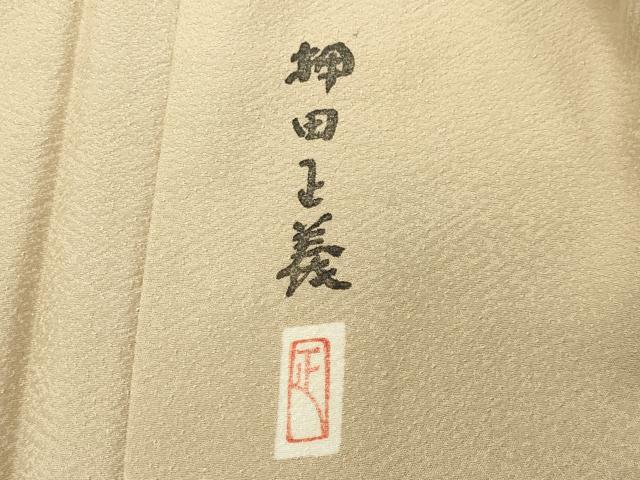 柳田正義
正